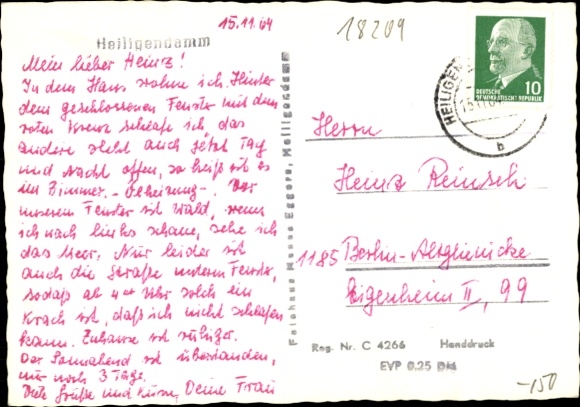 15.11.64
18209
Heiligendamm
Mein lieber Heinz!
In dem Haus wohne ich. Hinter
dem geschlossenen Fenster mit dem
roten Kreuz schlafe ich, das
andere steht auch jetzt Tag
und Nacht offen, so heiß ist es
im Zimmer. - Beheizung -. Vor
unserem Fenster ist Wald, wenn
ich nach links schaue, sehe ich
das Meer. Nur leider ist
auch die Straße unterm Fenster,
sodaß ab 4 Uhr solch ein
Krach ist, daß ich nicht schlafen
kann. Zuhause ist ruhiger.
Der Sonnabend ist überstanden,
nur noch 3 Tage.
Viele Grüße und Küsse, Deine Frau
Fotohaus Eggers, Heiligendamm
DEUTSCHE
DEMOKRATISCHE REPUBLIK
10
HEILIGEN
b
Herrn
Heinz Reinsch
1185 Berlin-Altglienicke
Eigenheim II, 99
Reg. Nr. C 4266 Handdruck
EVP 0.25 DM
-150